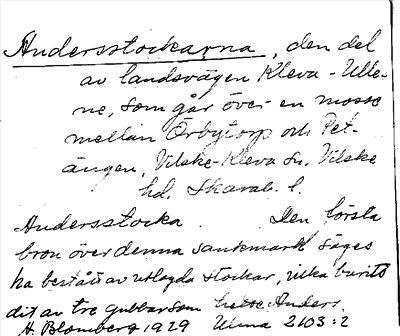 Andersstockarna, den del
av landsvägen Kleva-Ulle-
ne, som går över en mosse
mellan Örbytorp och Pet-
ängen, Vilske-Kleva sn. Vilske
hd. Skarab. l.
Andersstocka. Den första
bron över denna sankmark säges
ha bestått av utlagda stockar, vilka burits
dit av tre gubbar som hette Anders.
H. Blomberg 1929 Ulma 2103:2